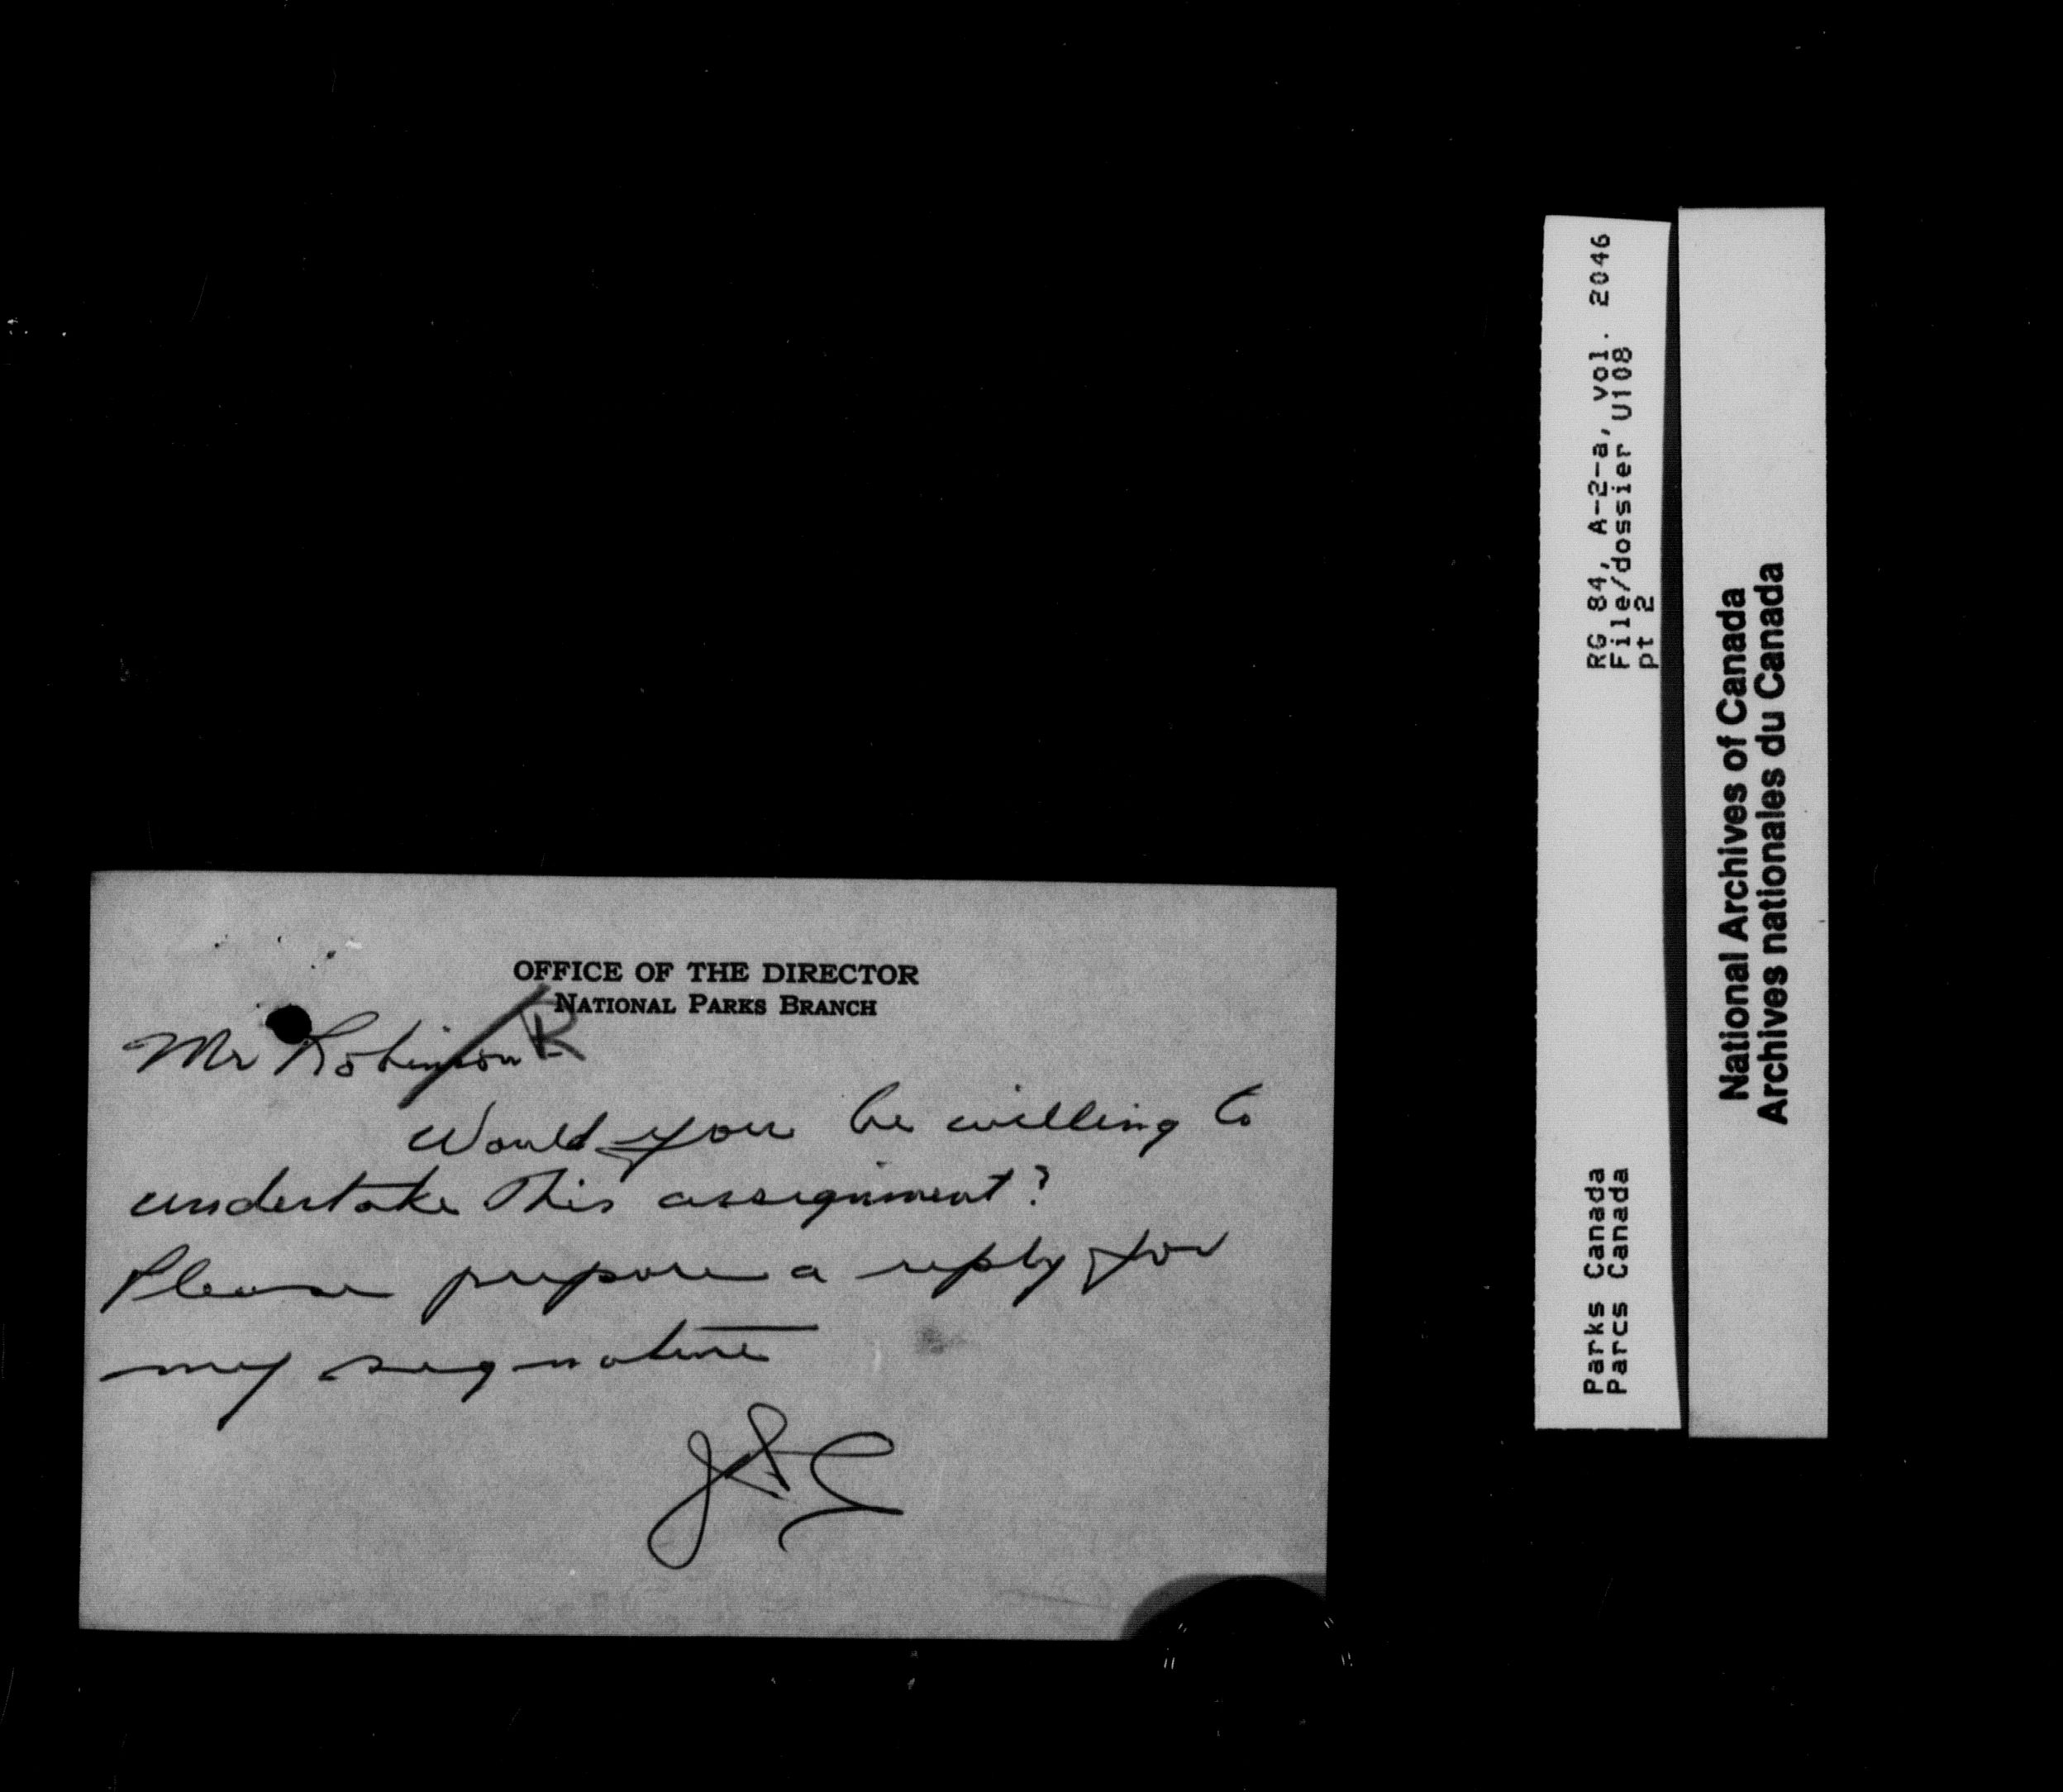 OFFICE OF THE DIRECTOR
NATIONAL PARKS BRANCH
Mr Robinson -
R
Would you be willing to
undertake this assignment?
Please prepare a reply for
my signature
RG 84, A-2-a, vol. 2046
File/dossier U108
pt 2
Parks Canada
Parcs Canada
National Archives of Canada
Archives nationales du Canada